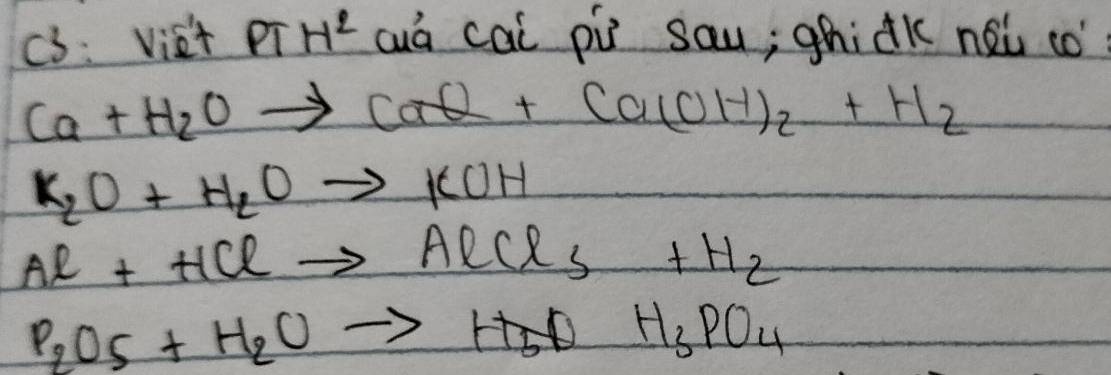 C3: Viết PTH² của các pứ sau; ghi đk nếu có:
Ca + H₂O → Ca(OH)₂ + H₂
K₂O + H₂O → KOH
Al + HCl → AlCl₃ + H₂
P₂O₅ + H₂O → H₃PO₄